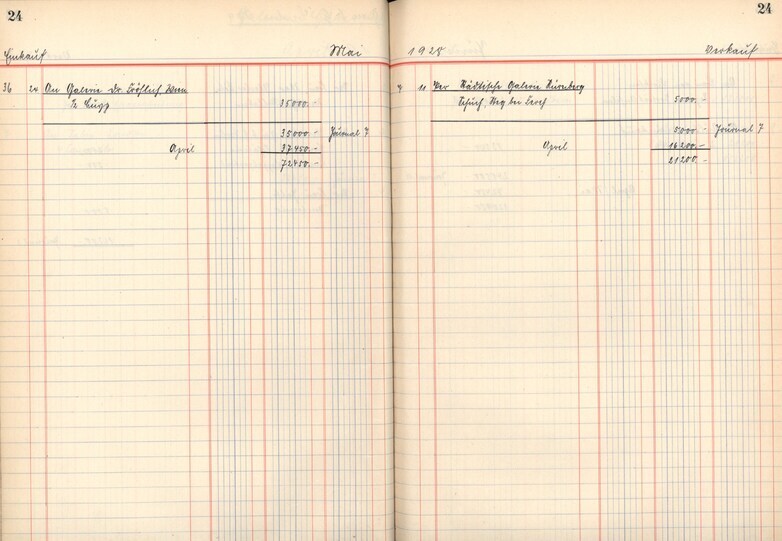 24
Einkauf Mai
36 24 An Galerie Dr. Fröhlich, Wien
35000.-
35000.- Journal 7
April 37450.-
72450.-
24
1928 Verkauf
11 Per Städtische Galerie Nürnberg
Schuch, Weg bei 5000.-
5000.- Journal 7
April 16200.-
21200.-